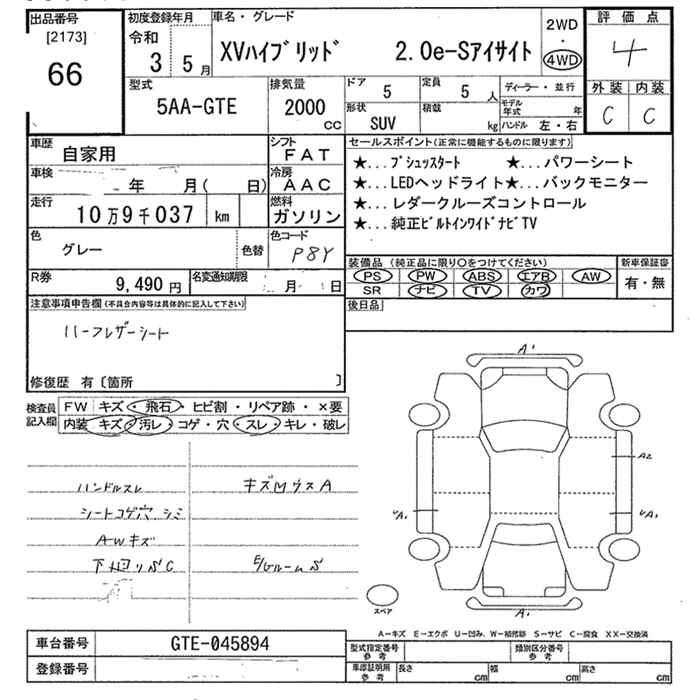 出品番号
[2173]
66
初度登録年月
令和
3 5月
車名・グレード
XVハイブリッド 2.0e-Sアイサイト
2WD
・
4WD
評価点
4
外装 内装
C C
型式
5AA-GTE
排気量
2000
CC
ドア
5
定員
5人
形状
SUV
積載
kg
ディーラー・並行
モデル年式 年
ハンドル 左・右
車歴
自家用
シフト
FAT
車検
年 月( 日)
冷房
AAC
走行
10万9千037 km
燃料
ガソリン
色
グレー
色替
色コード
P8Y
R券
9,490円
名変通知期限
月 日
セールスポイント(正常に機能するものに限ります)
★...プシュッスタート ★...パワーシート
★...LEDヘッドライト★...バックモニター
★...レダークルーズコントロール
★...純正ビルトインワイドナビTV
装備品 (純正品に限り○をつけてください)
新車保証書
PS PW ABS エアB AW
SR ナビ TV カワ
有・無
後日品
注意事項申告欄(不具合内容等は具体的に記入して下さい)
ハーフレザーシート
修復歴 有〔箇所 〕
検査員記入欄
FW キズ・飛石・ヒビ割・リペア跡・×要
内装 キズ・汚レ・コゲ・穴・スレ・キレ・破レ
ハンドルスレ
シートコゲ穴 シミ
AWキズ
下廻りサビC
キズMウスA
E/Gルーム S
A1
A2
UA1
UA1
A1
スペア
A-キズ E-エクボ U-凹み、W-補修跡 S-サビ C-腐食 XX-交換済
車台番号
GTE-045894
登録番号
型式指定番号
参考
類別区分番号
参考
車庫証明用
参考
長さ cm 幅 cm 高さ cm